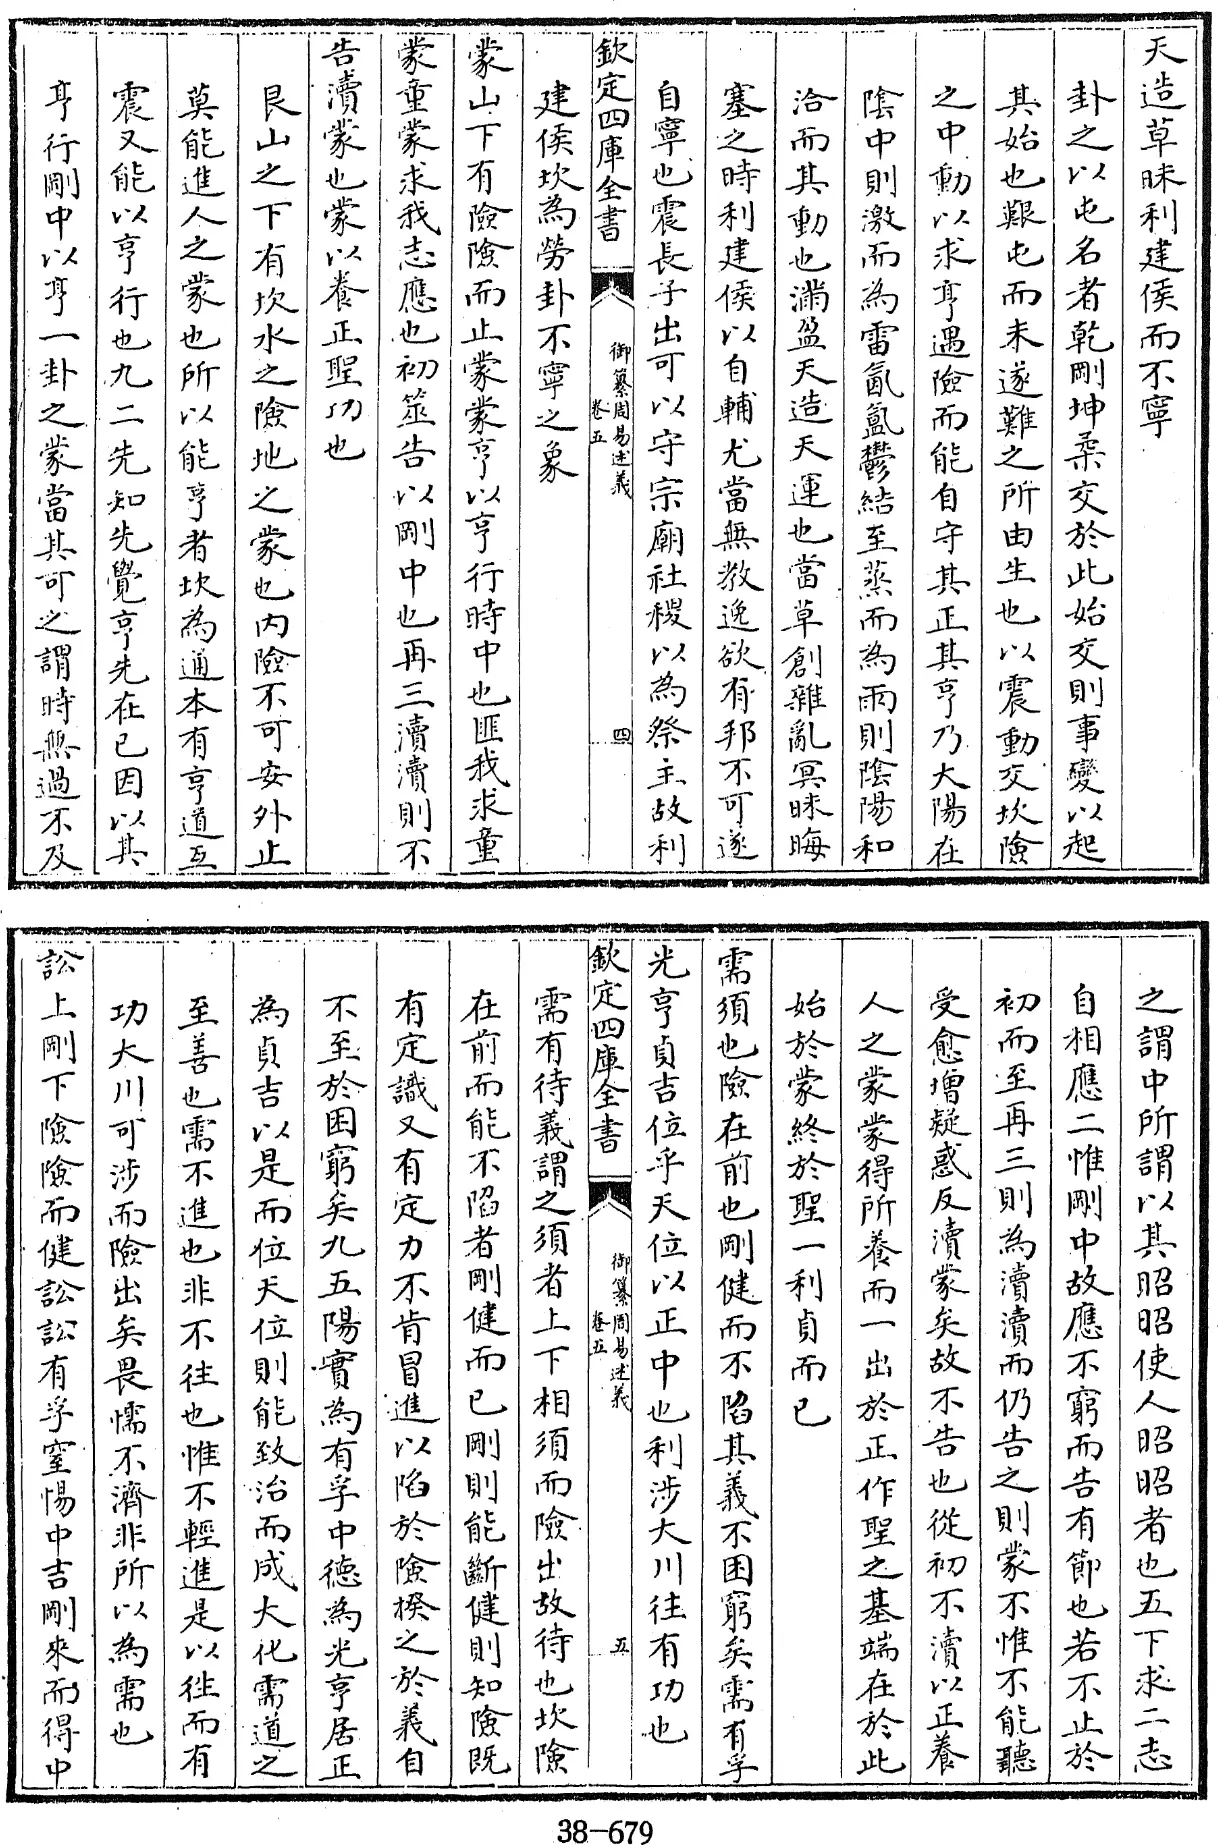 天造草昧利建侯而不寧
卦之以屯名者乾剛坤柔交於此始交則事變以起
其始也艱屯而未遂難之所由生也以震動交坎險
之中動以求亨遇險而能自守其正其亨乃大陽在
陰中則激而為雷氤氲鬱結至蒸而為雨則陰陽和
洽而其動也滿盈天造天運也當草創雜亂冥昧晦
塞之時利建侯以自輔尤當無教逸欲有邦不可遂
自寧也震長子出可以守宗廟社稷以為祭主故利
欽定四庫全書
御纂周易述義
卷五
四
建侯坎為勞卦不寧之象
蒙山下有險險而止蒙蒙亨以亨行時中也匪我求童
蒙童蒙求我志應也初筮告以剛中也再三瀆瀆則不
告瀆蒙也蒙以養正聖功也
艮山之下有坎水之險地之蒙也内險不可安外止
莫能進人之蒙也所以能亨者坎為通本有亨道互
震又能以亨行也九二先知先覺亨先在已因以其
亨行剛中以亨一卦之蒙當其可之謂時無過不及
之謂中所謂以其昭昭使人昭昭者也五下求二志
自相應二惟剛中故應不窮而告有節也若不止於
初而至再三則為瀆瀆而仍告之則蒙不惟不能聽
受愈增疑惑反瀆蒙矣故不告也從初不瀆以正養
人之蒙蒙得所養而一出於正作聖之基端在於此
始於蒙終於聖一利貞而已
需須也險在前也剛健而不陷其義不困窮矣需有孚
光亨貞吉位乎天位以正中也利涉大川往有功也
欽定四庫全書
御纂周易述義
卷五
五
需有待義謂之須者上下相須而險出故待也坎險
在前而能不陷者剛健而已剛則能斷健則知險既
有定識又有定力不肯冒進以陷於險揆之於義自
不至於困窮矣九五陽實為有孚中德為光亨居正
為貞吉以是而位天位則能致治而成大化需道之
至善也需不進也非不往也惟不輕進是以往而有
功大川可涉而險出矣畏懦不濟非所以為需也
訟上剛下險險而健訟訟有孚窒惕中吉剛來而得中
38-679